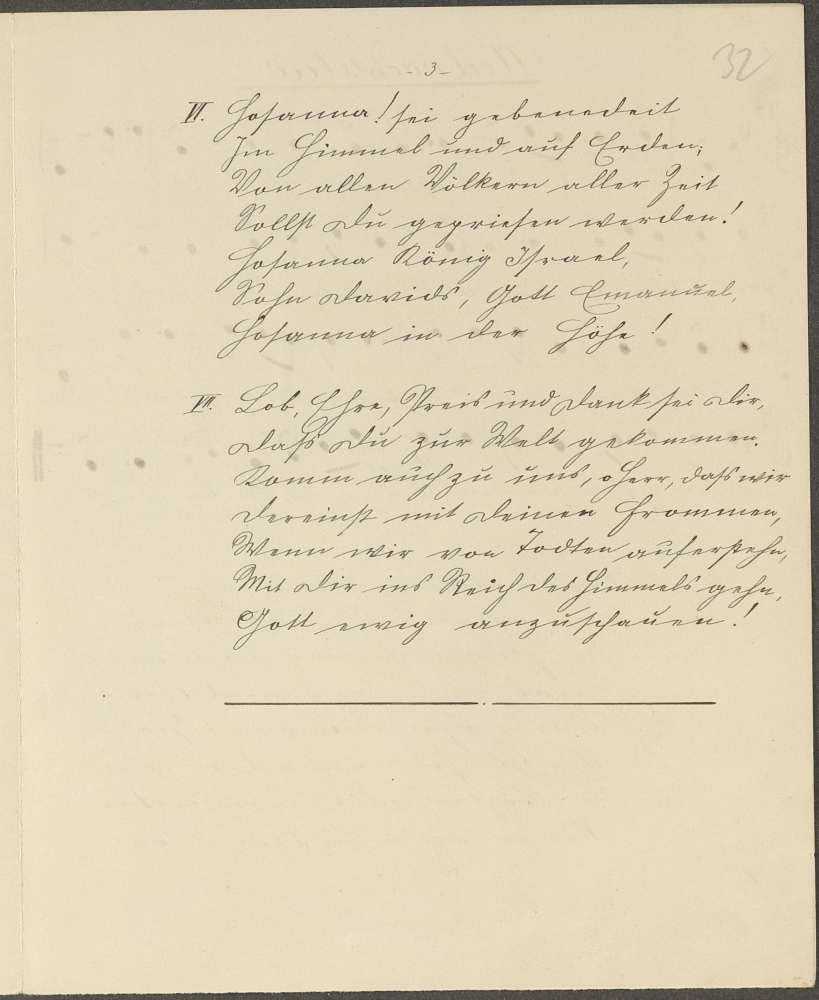 - 3 -
32
VI. Hosanna! sei gebenedeit
Im Himmel und auf Erden;
Von allen Völkern aller Zeit
Sollst Du gepriesen werden!
Hosanna König Israel,
Sohn Davids, Gott Emanuel,
Hosanna in der Höhe!
VII. Lob, Ehre, Preis und Dank sei Dir,
Daß Du zur Welt gekommen.
Komm auch zu uns, o Herr, daß wir
Dereinst mit Deinen Frommen,
Wenn wir von Todten auferstehn,
Mit Dir ins Reich des Himmels gehn,
Gott ewig anzuschauen!